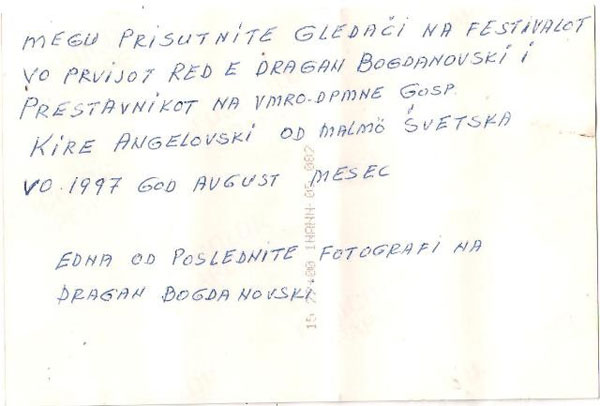 MEGU PRISUTNITE GLEDAČI NA FESTIVALOT
VO PRVIJOT RED E DRAGAN BOGDANOVSKI i
PRESTAVNIKOT NA VMRO-DPMNE GOSP.
KIRE ANGELOVSKI OD MALMÖ ŠVETSKA
VO. 1997 GOD AUGUST MESEC
EDNA OD POSLEDNITE FOTOGRAFI NA
DRAGAN BOGDANOVSKI